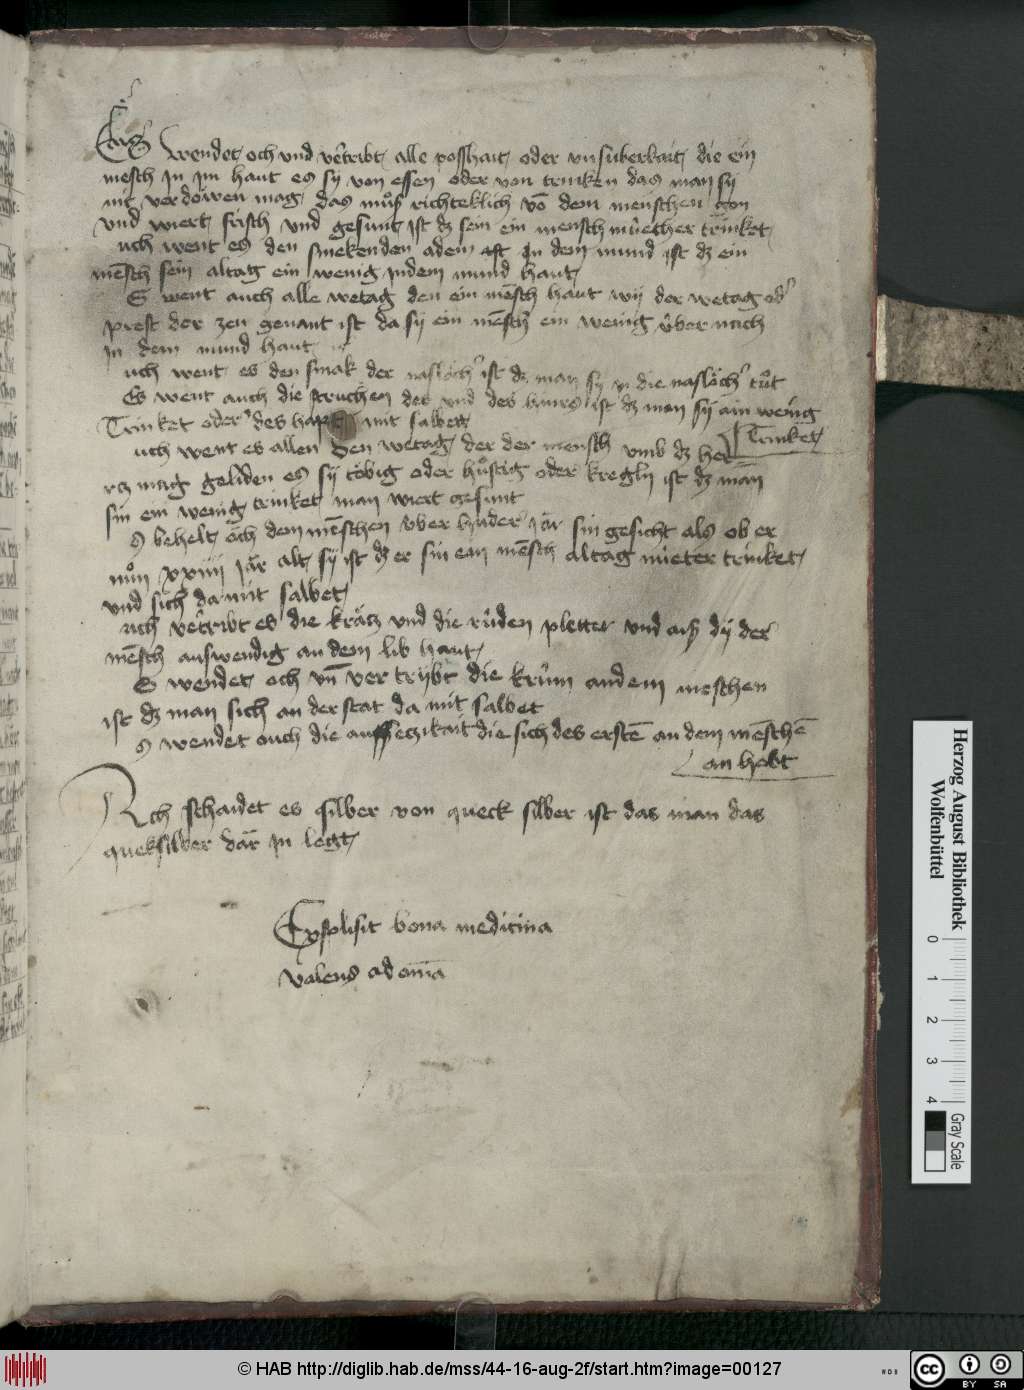 Es wendet och vnd v̄tribt alle posshait oder vnsuberkait die ein
mesch jn im haut es sy von essen oder von trinken das man sy
nit verdöwen mag das muͦß richteklich vō dem menschen gon
vnd wiert frisch vnd gesunt ist dz sein ein mensch nüechter trinket
uch went es den smekenden adem oft jn dem mund ist dz ein
mēsch sein altag ein wenig jndem mund haut
S went auch alle wetag den ein mēsch haut wij der wetag od
prest der zen genant ist da sij ein mēsch ein wenig über nach
jn dem mund haut
uch went es den smak der naslöch ist dz man sy jn die naslöch tuͦt
Es went auch die struchen des vnd des hirns ist dz man sij ain wenig
Trinket oder des haptt mit salbett
uch went es allen den wetag der der mensch vmb dz her
Trinket
tz mag geliden es sy töbig oder huͦstig oder kregln ist dz man
sin ein wenig trinket man wiert gesunt
S behelt och dem mēschen vber hnder jär sin gesicht als ob er
nuͦn xxiiij jär alt sij ist dz er sin ean mēsch altag nüeter trinket
vnd sich da mit salbet
uch vētribt es die krätz vnd die rüden pletter vnd aiß dij der
mēsch auswendig an dem lib haut
S wendet och vn̄ vertrijbt die krüm andem meschen
ist dz man sich an der stat da mit salbet
S wendet ouch die ausseczikait die sich des erstē an dem mēschē
an hebt
Ach schaidet es silber von queck silber ist das man das
queksilber där jn legt
Expliſit bona medicina
valens ad om̄ia
Herzog August Bibliothek
Wolfenbüttel
0 1 2 3 4
Gray Scale
© HAB http://diglib.hab.de/mss/44-16-aug-2f/start.htm?image=00127
WDB
cc BY SA